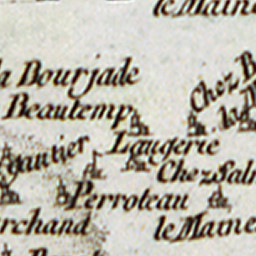 le Maine
la Bourjade
Chez B
Beautemp
la
Laugerie
gautier
Chez Sal
Perroteau
rchand
le Maine